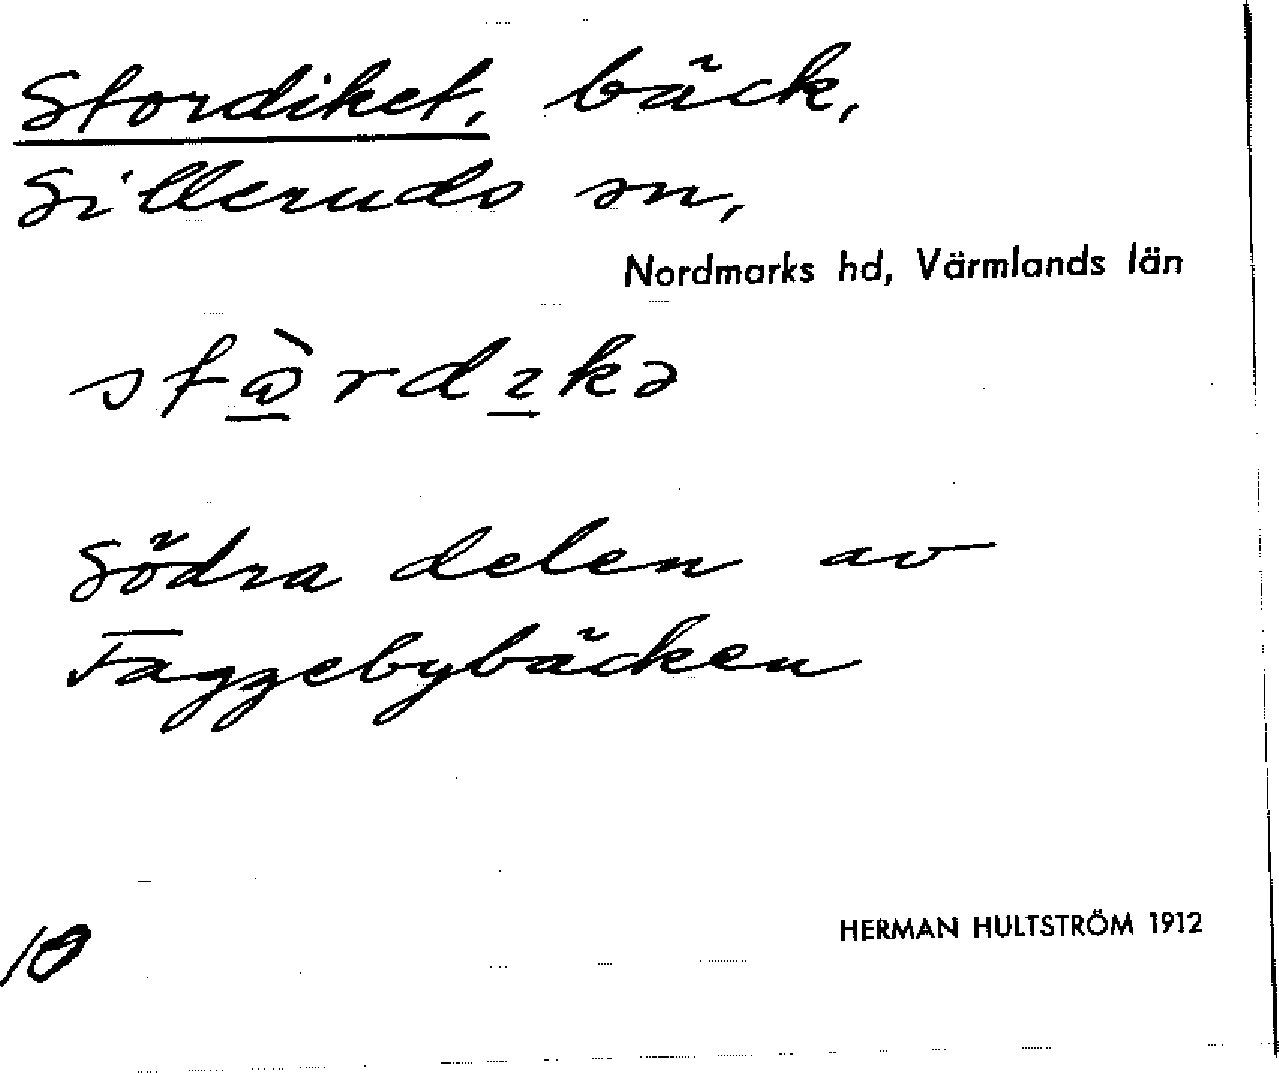 Stordiket, bäck,
Silleruds sn,
Nordmarks hd, Värmlands län
Södra delen av
Faggebybäcken
HERMAN HULTSTRÖM 1912
10